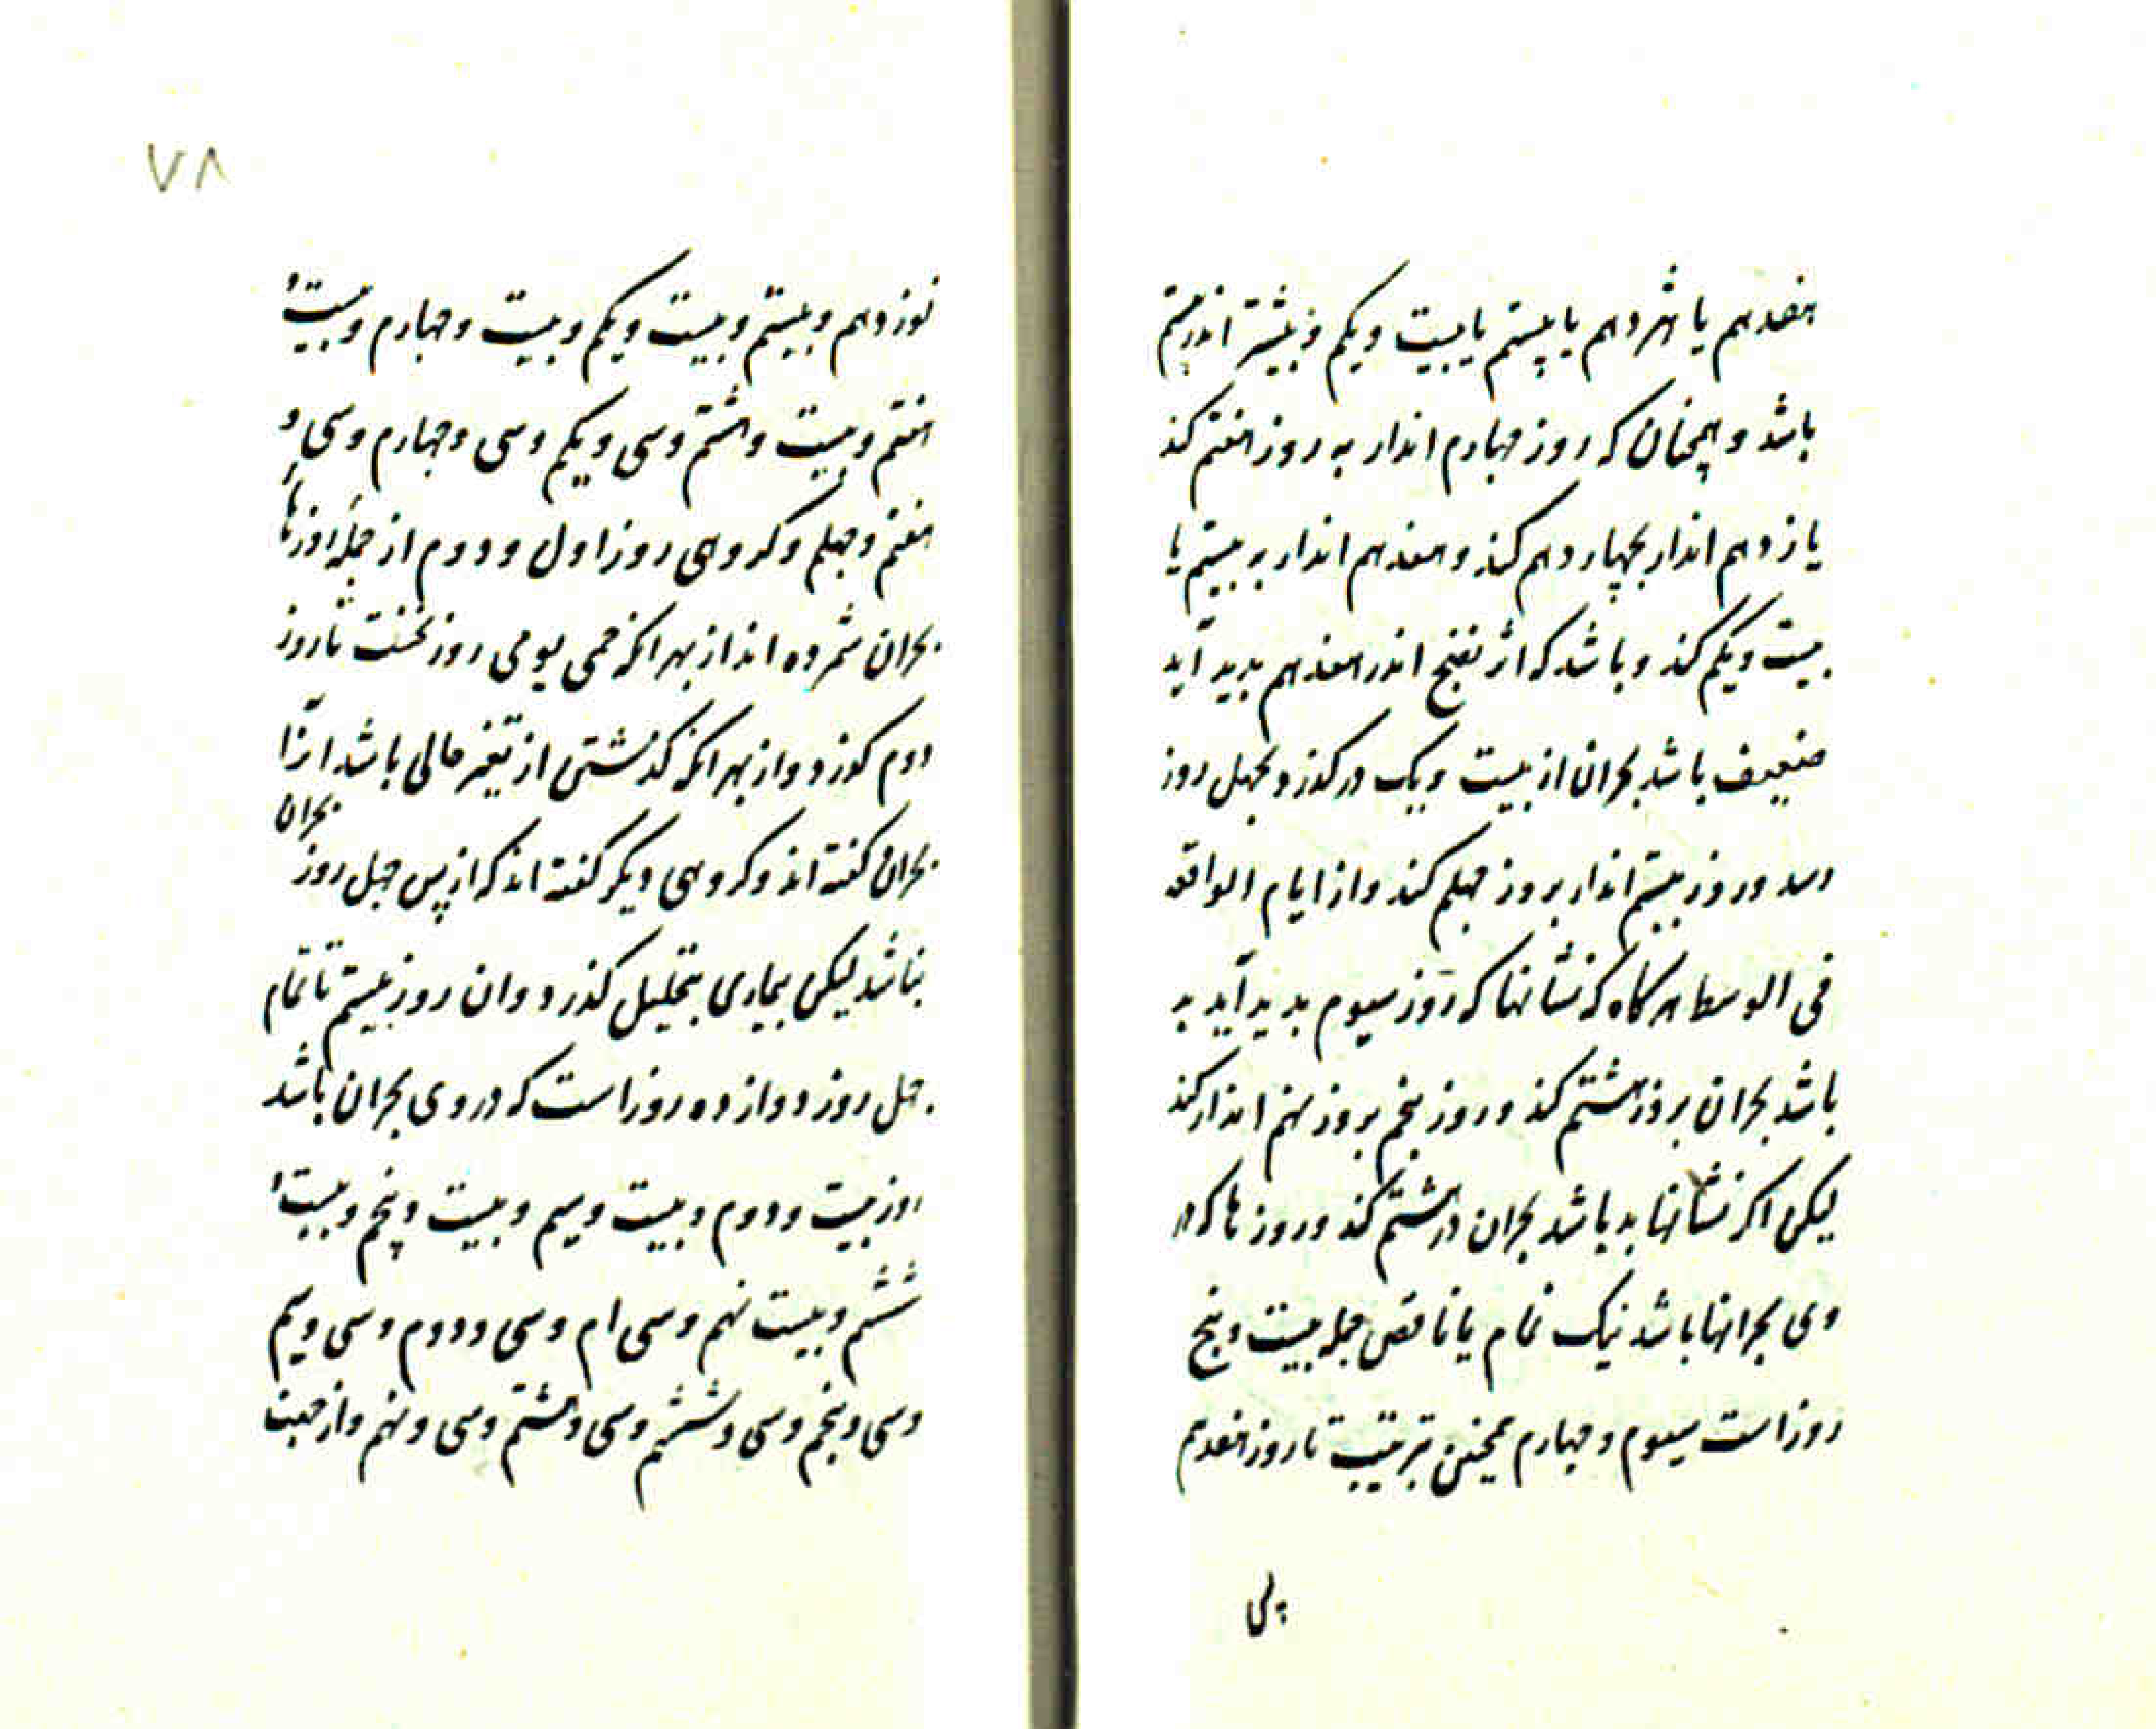 هفدهم یا هژدهم یا بیستم یا بیست و یکم و بیشتر اندر بیستم
باشد و همچنان که روز چهارم انذار به روز هفتم کند
یازدهم انذار بچهاردهم کند و هفدهم انذار به بیستم یا
بیست و یکم کند و باشد که اثر نضج اندر هفدهم بدید آید
ضعیف باشد بحران از بیست و یک درکذرد و بچهل روز
رسد و روز بیستم انذار بروز چهلم کند و از ایام الواقعه
فی الوسط هرکاه که نشانها که روز سیوم بدید آید بد
باشد بحران بروز هشتم کند و روز پنجم بروز نهم انذار کند
لیکن اکر نشانها بد باشد بحران در هشتم کند و روزها که در
وی بحرانها باشد نیک تمام یا ناقص جمله بیست و پنج
روز است سیوم و چهارم همچنین بترتیب تا روز هفدهم
۷۸
نوزدهم و بیستم و بیست و یکم و بیست و چهارم و بیست و
هفتم و بیست و هشتم و سی و یکم و سی و چهارم و سی و
هفتم و چهلم و کروهی روز اول و دوم از جمله روزها
بحران شمرده اند از بهر آنکه حمی یومی روز نخست تا روز
دوم کذرد و از بهر آنکه کذشتن از تغیر حالی باشد آنرا
بحران کفته اند و کروهی دیکر کفته اند که از پس چهل روز بحران
نباشد لیکن بیماری بتحلیل کذرد و از روز بیستم تا تمام
چهل روز دوازده روز است که در وی بحران باشد
روز بیست و دوم و بیست و سیم و بیست و پنجم و بیست و
ششم و بیست نهم و سی ام و سی و دوم و سی و سیم
و سی و پنجم و سی و ششم و سی و هشتم و سی و نهم و از